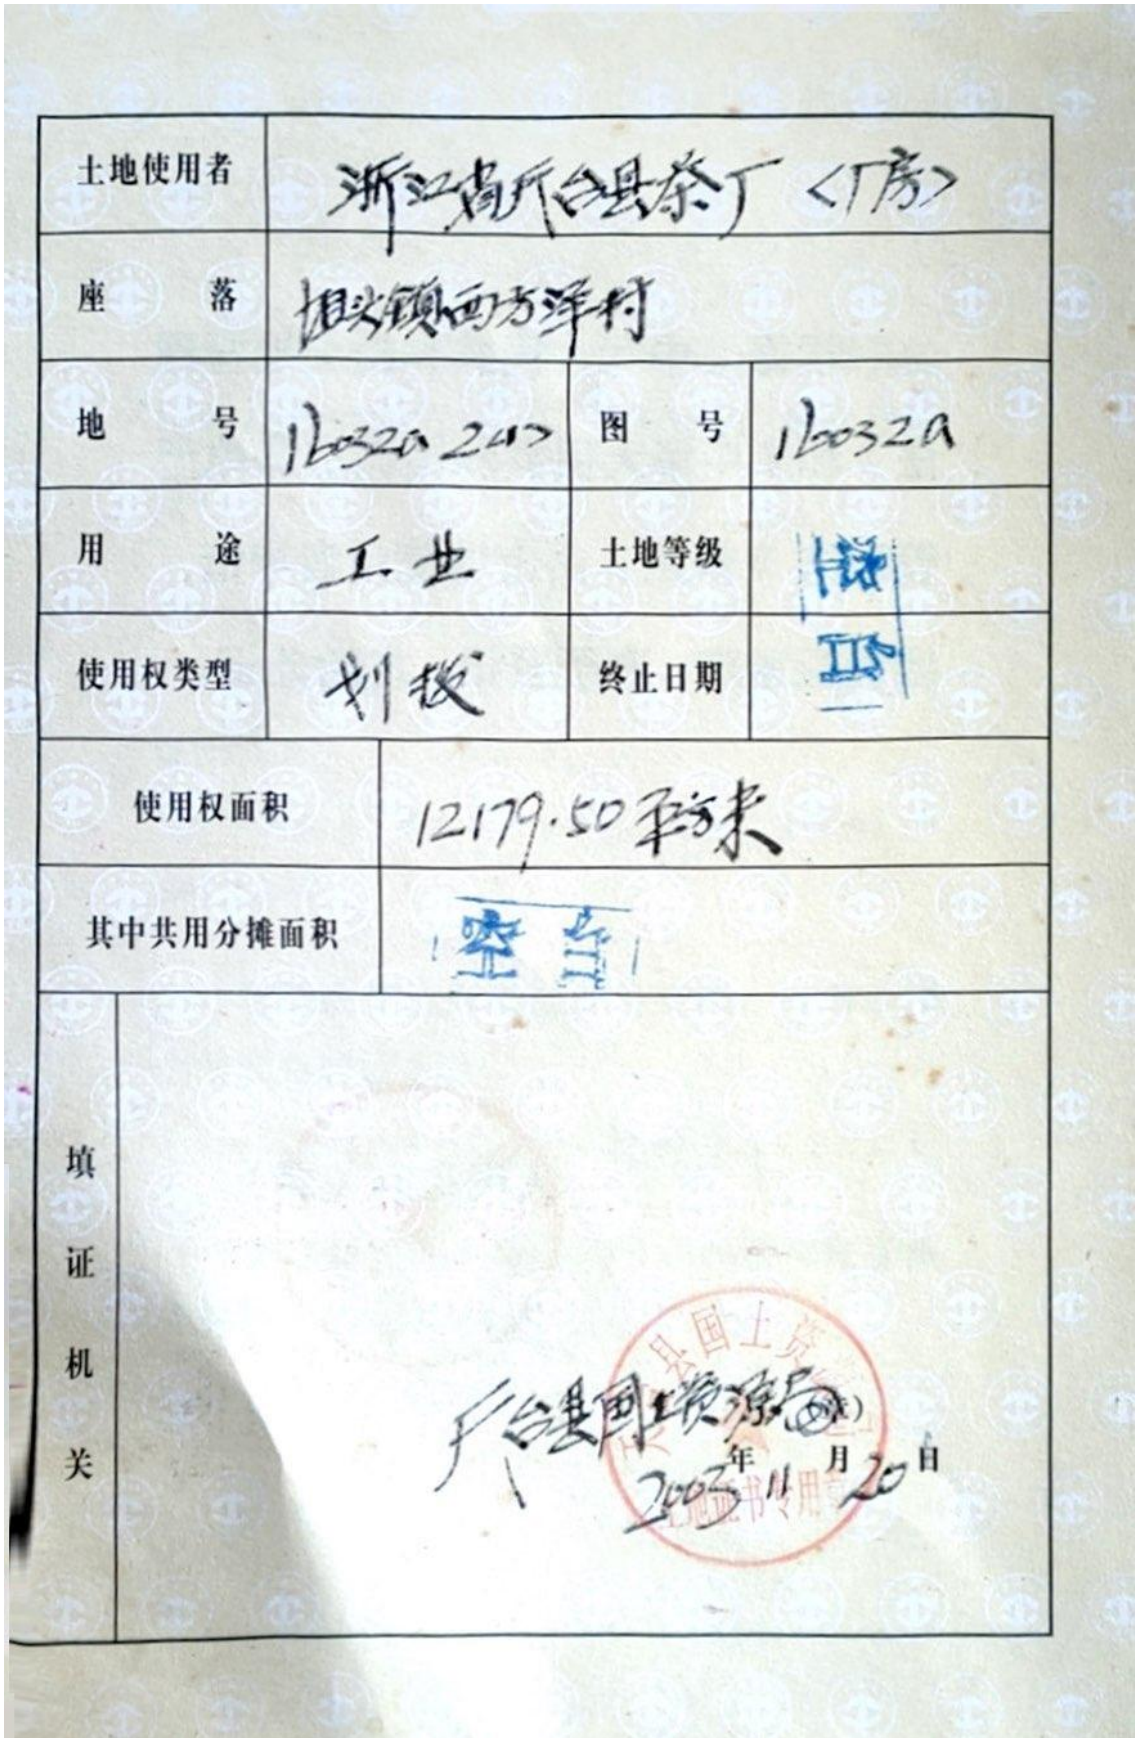 土地使用者 浙江省天台县茶厂〈厂房〉
座落 坦头镇西方洋村
地号 160329 2<1> 图号 160329
用途 工业 土地等级 空
使用权类型 划拨 终止日期 白
使用权面积 12179.50平方米
其中共用分摊面积 空白
填证机关
天台县国土资
天台县国土资源局
年 月 日
2003 11 20
土地证书专用章